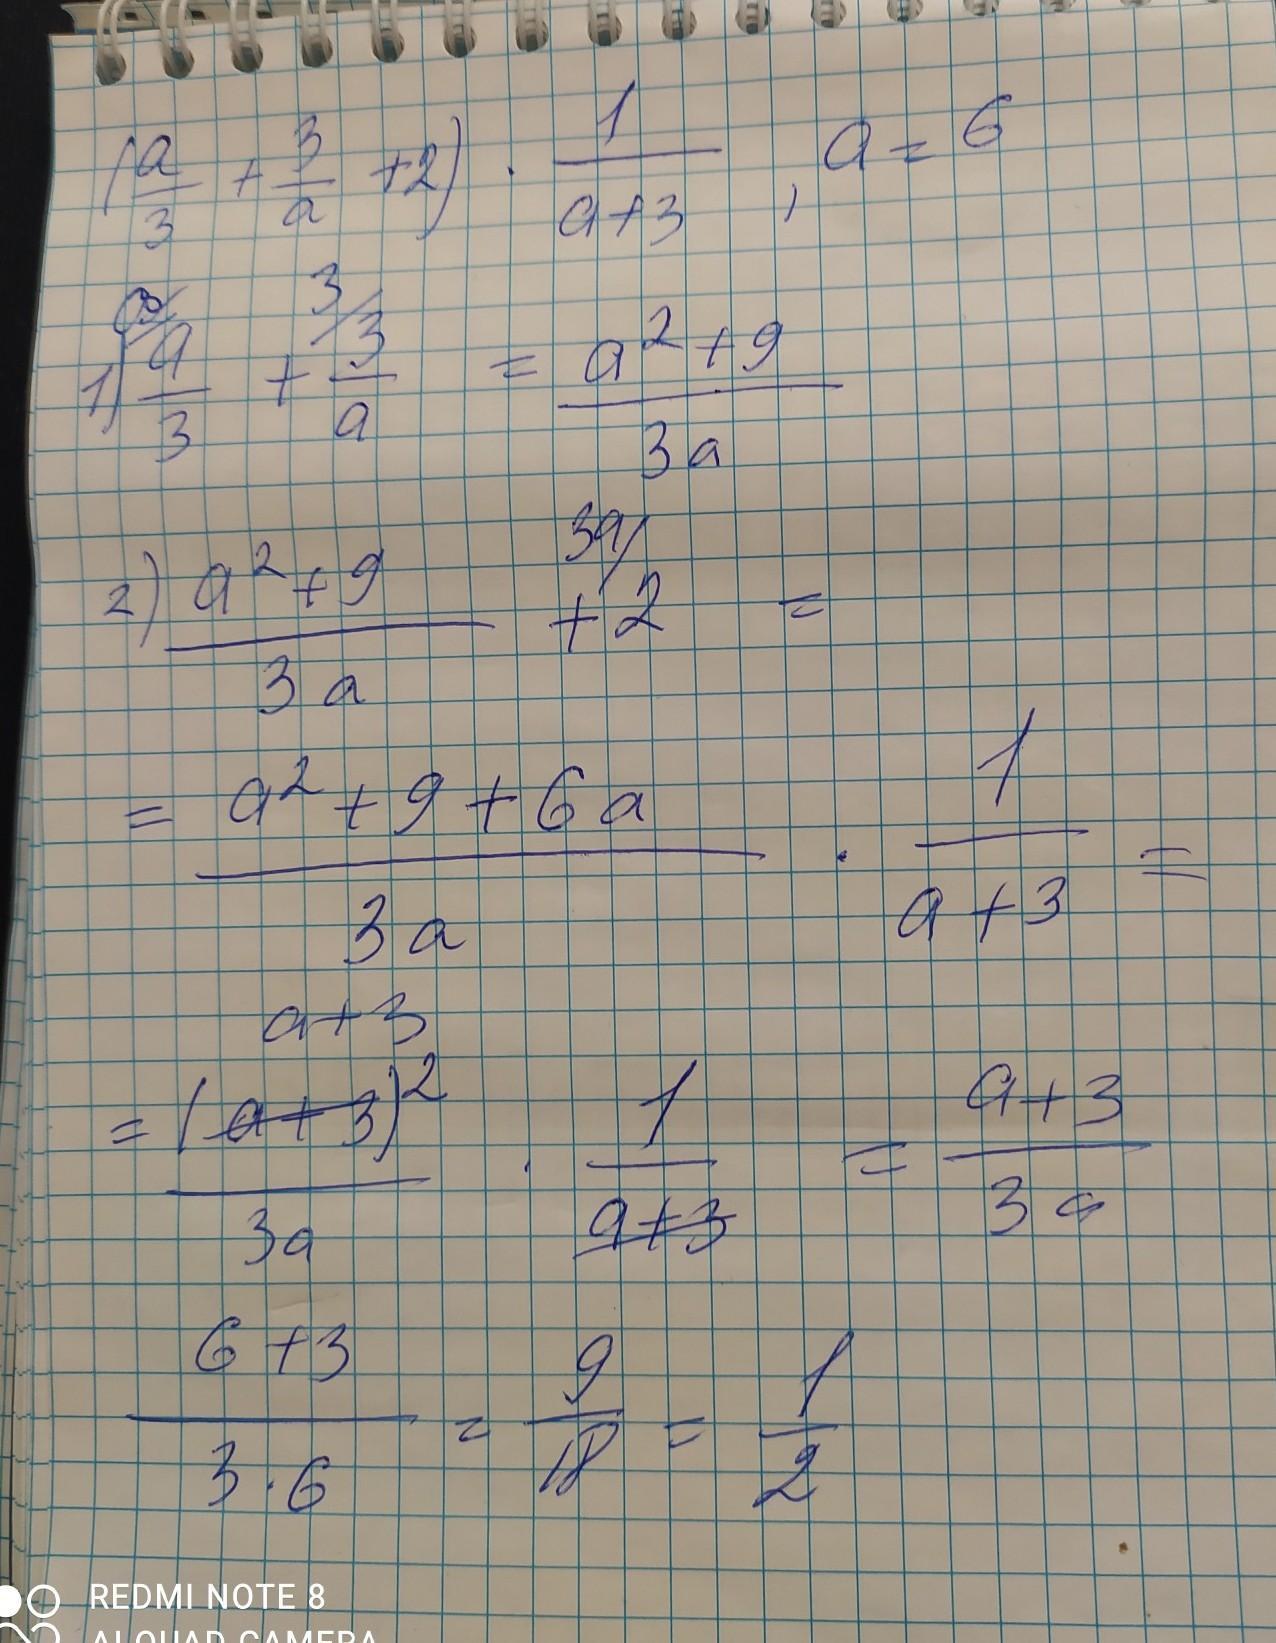 (a/3 + 3/a + 2) · 1/(a+3) , a = 6
1) a/3 + 3/ 3/a = (a² + 9)/(3a)
2) (a² + 9)/(3a) + 3a/ 2 =
= (a² + 9 + 6a)/(3a) · 1/(a+3) =
a+3
= (a+3)²/(3a) · 1/(a+3) = (a+3)/(3a)
(6+3)/(3·6) = 9/18 = 1/2
REDMI NOTE 8
AI QUAD CAMERA